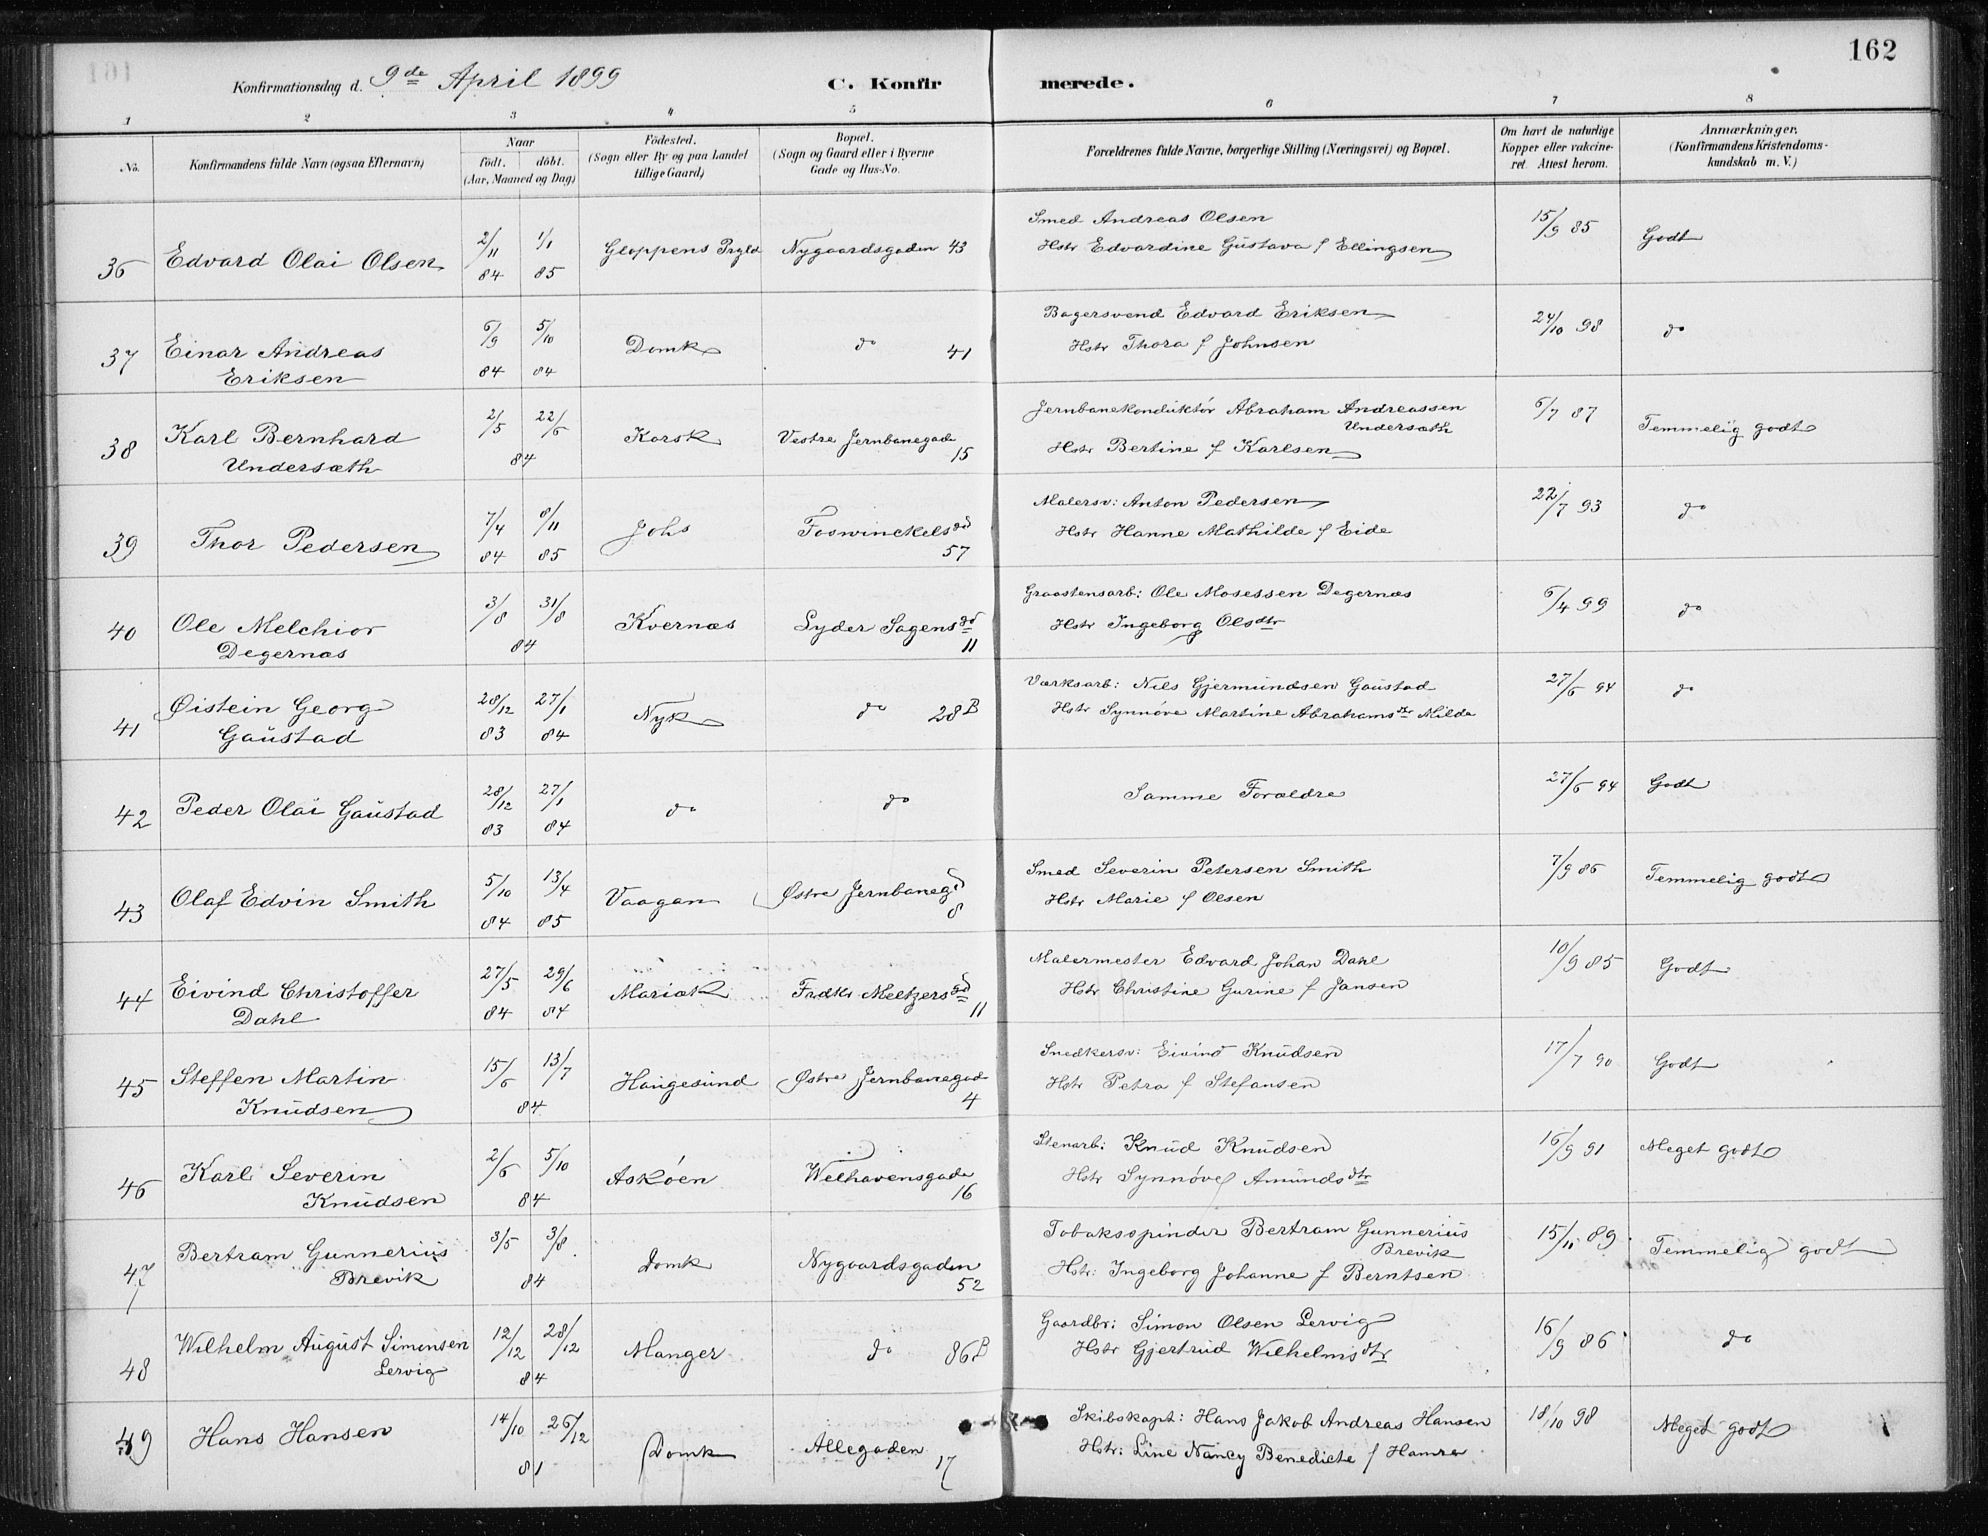 162
Konfirmationsdag d. 9de April 1899
C. Konfirmerede.
1 2 3 4 5 6 7 8
No.
Konfirmandens fulde Navn (ogsaa Efternavn)
Naar
födt. döbt.
(Aar, Maaned og Dag)
Födested.
(Sogn eller By og paa Landet
tillige Gaard)
Bopæl.
(Sogn og Gaard eller i Byerne
Gade og Hus-No.
Forældrenes fulde Navne, borgerlige Stilling (Næringsvei) og Bopæl.
Om havt de naturlige
Kopper eller vakcine-
ret. Attest herom.
Anmærkninger.
(Konfirmandens Kristendoms-
kundskab m. V.)
36 Edvard Olai Olsen 2/11 84 1/1 85 Gloppens Prgld Nygaardsgaden 43
Smed Andreas Olsen
Hstr Edvardine Gustava f Ellingsen 15/9 85 Godt
37 Einar Andreas
Eriksen 6/9 84 5/10 84 Domk do 41
Bagersvend Edvard Eriksen
Hstr Thora f Johnsen 24/10 98 do
38 Karl Bernhard
Undersæth 2/5 22/6 84 Korsk Vestre Jernbanegade 15
Jernbanekonduktör Abraham Andreassen
Undersæth
Hstr Bertine f Karlsen 6/7 87 Temmelig godt
39 Thor Pedersen 7/4 84 8/11 85 Johs Foswinckelsgd 57
Malersv: Anton Pedersen
Hstr Hanne Mathilde f Eide 22/7 93 do
40 Ole Melchior
Degernæs 3/8 31/8 84 Kvernæs Lyder Sagensgd 11
Graastensarb: Ole Mosessen Degernæs
Hstr Ingeborg Olsdtr 6/4 99 do
41 Øistein Georg
Gaustad 28/12 83 27/1 84 Nyk do 28B
Værksarb: Nils Gjermundsen Gaustad
Hstr Synnöve Martine Abrahamsdtr Milde 27/6 94 do
42 Peder Olai Gaustad 28/12 83 27/1 84 do do
Samme Forældre 27/6 94 Godt
43 Olaf Edvin Smith 5/10 84 13/4 85 Vaagan Østre Jernbanegd 8
Smed Severin Petersen Smith
Hstr Marie f Olsen 7/9 86 Temmelig godt
44 Eivind Christoffer
Dahl 27/5 84 29/6 84 Mariæk Fredkr Meltzersgd 11
Malermester Edvard Johan Dahl
Hstr Christine Gurine f Jansen 10/9 85 Godt
45 Steffen Martin
Knudsen 15/6 13/7 84 Haugesund Østre Jernbanegad 4
Snedkersv: Eivind Knudsen
Hstr Petra f Stefansen 17/7 90 Godt
46 Karl Severin
Knudsen 2/6 5/10 84 Asköen Welhavensgade 16
Stenarb: Knud Knudsen
Hstr Synnöve Amundsdtr 16/9 91 Meget godt
47 Bertram Gunnerius
Brevik 3/5 3/8 84 Domk Nygaardsgaden 52
Tobaksspinder Bertram Gunnerius
Brevik
Hstr: Ingeborg Johanne f Berntsen 15/11 89 Temmelig godt
48 Wilhelm August Simonsen
Lervig 12/12 28/12 84 Manger do 86B
Gaardbr: Simon Olsen Lervig
Hstr Gjertrud Wilhelmsdtr 16/9 86 do
49 Hans Hansen 14/10 26/12 81 Domk Allegaden 17
Skibskapt: Hans Jakob Andreas Hansen
Hstr: Line Nancy Benedicte f Hamre 18/10 98 Meget godt